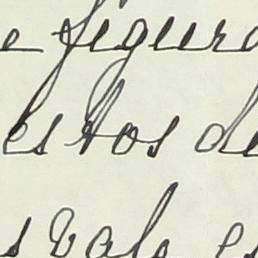 e figura
estos de
s vale es